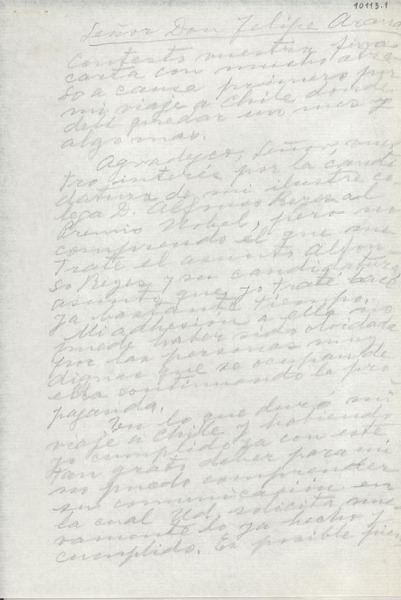 10113.1
Señor Don Felipe Arana
Contesto vuestra fina
carta con mucho atra-
so a causa primero por
mi viaje a Chile donde
debí quedar un mes y
algo mas.
Agradezco, Señor, vues-
tro interés por la candi-
datura de mi ilustre co-
lega D. Alfonso Reyes al
Premio Nobel, pero no
comprendo el que me
trate el asunto Alfon-
so Reyes y su candidatura
asunto que yo traté hace
ya bastante tiempo.
Mi adhesión a ella no
puede haber sido olvidada
por las personas muy
dignas que se ocupan de
ella continuando la pro
paganda.
En lo que duró mi
viaje a Chile y habiendo
yo cumplido ya con este
tan grato deber para mí
no puedo comprender
su comunicación en
la cual Ud. solicita nue-
vamente lo ya hecho y
cumplido. Es posible